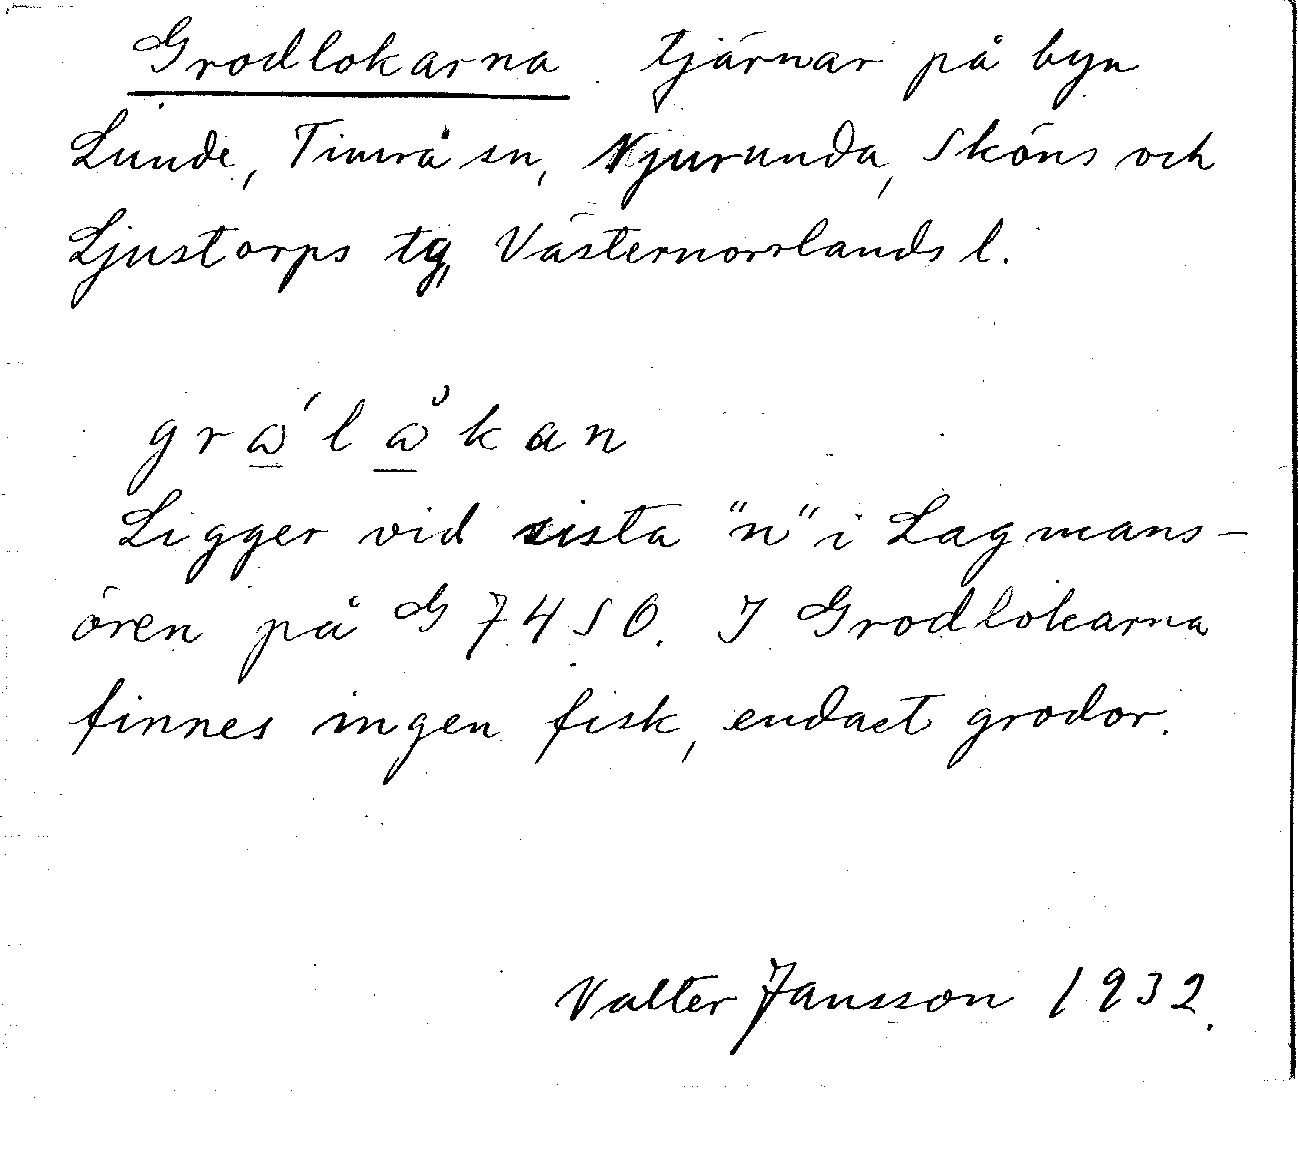 Grodlokarna tjärnar på byn
Lunde, Timrå sn, Njurunda, Sköns och
Ljustorps tg, Västernorrlands l.
Ligger vid sista "n" i Lagmans-
ören på G 74 SO. I Grodlokarna
finnes ingen fisk, endast grodor.
Valter Jansson 1932.